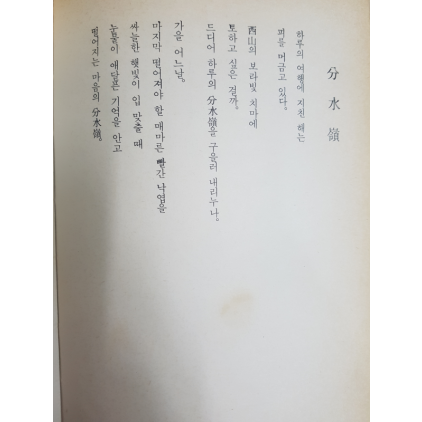 分水嶺
하루의 여행에 지친 해는
피를 머금고 있다.
西山의 보라빛 치마에
토하고 싶은 걸까.
드디어 하루의 分水嶺을 구을러 내리누나.
가을 어느날.
마지막 떨어져야 할 매마른 빨간 낙엽을
싸늘한 햇빛이 입 맞출 때
눈물이 애달픈 기억을 안고
떨어지는 마음의 分水嶺.